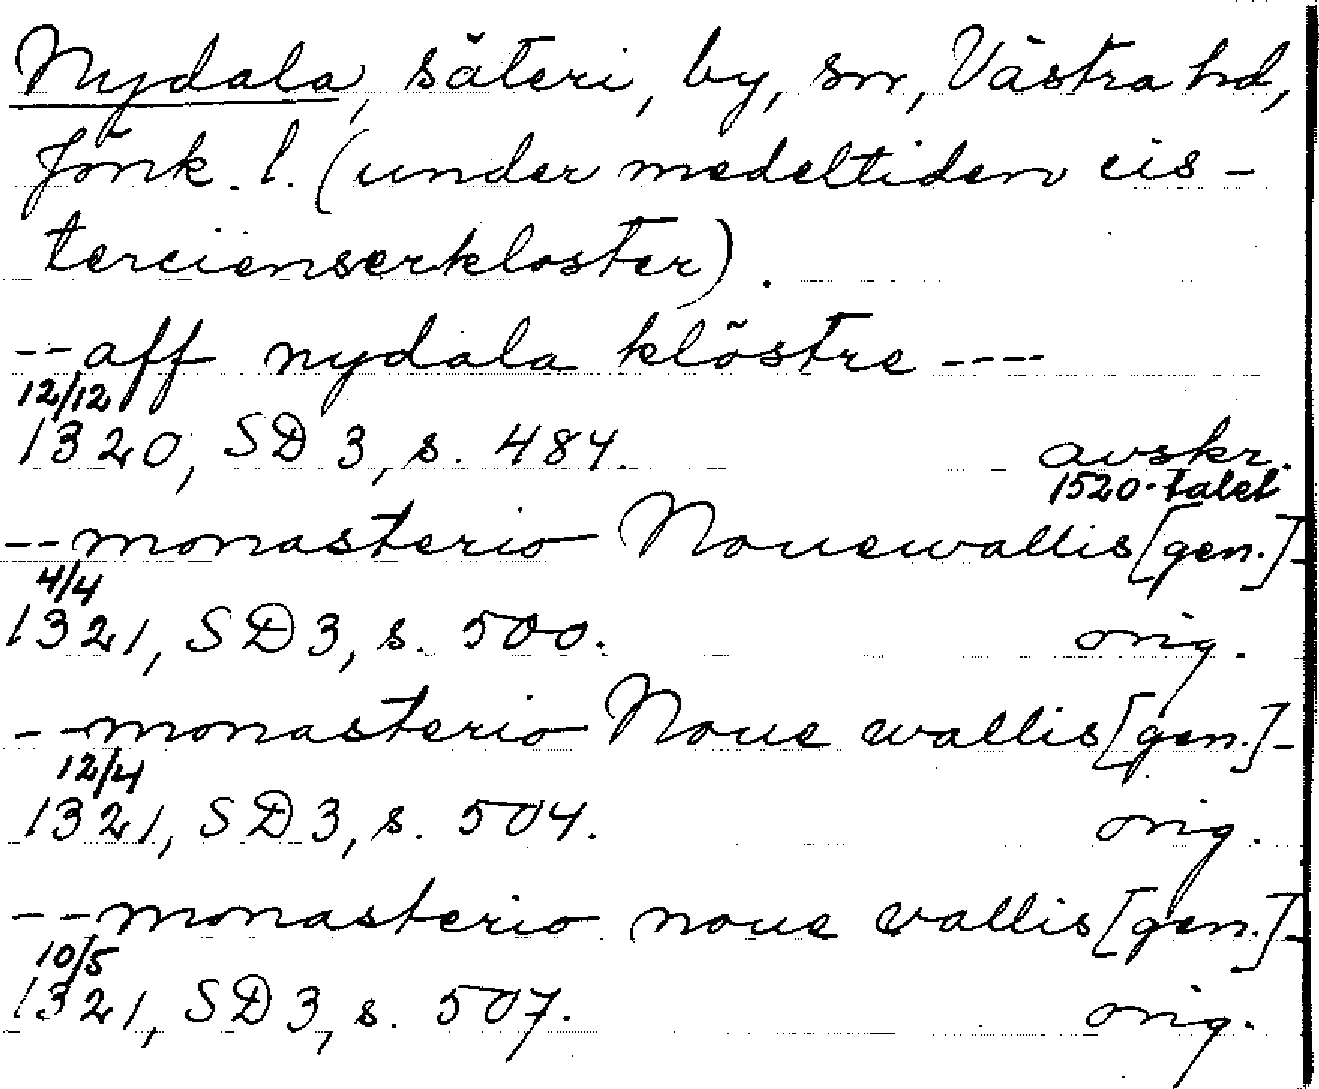 Nydala, säteri, by, sn, Västra hd,
Jönk. l. (under medeltiden cis-
tercienserkloster).
--aff nydala klöstre ----
12/12
1320, SD 3, s. 484. avskr.
1520-talet
--monasterio Nouewallis [gen.]-
4/4
1321, SD 3, s. 500. orig.
--monasterio Noue wallis [gen.]-
12/4
1321, SD 3, s. 504. orig.
--monasterio noue vallis [gen.]-
10/5
1321, SD 3, s. 507. orig.